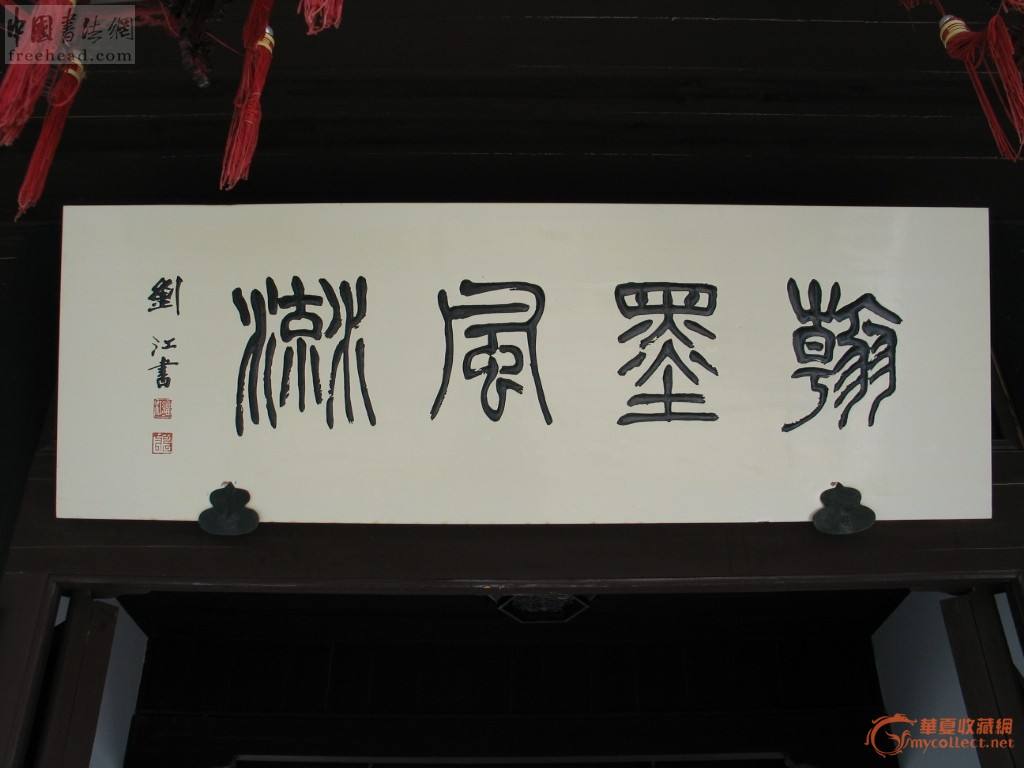 中國書法網
freehead.com
翰墨風流
劉江書
華夏收藏網
mycollect.net